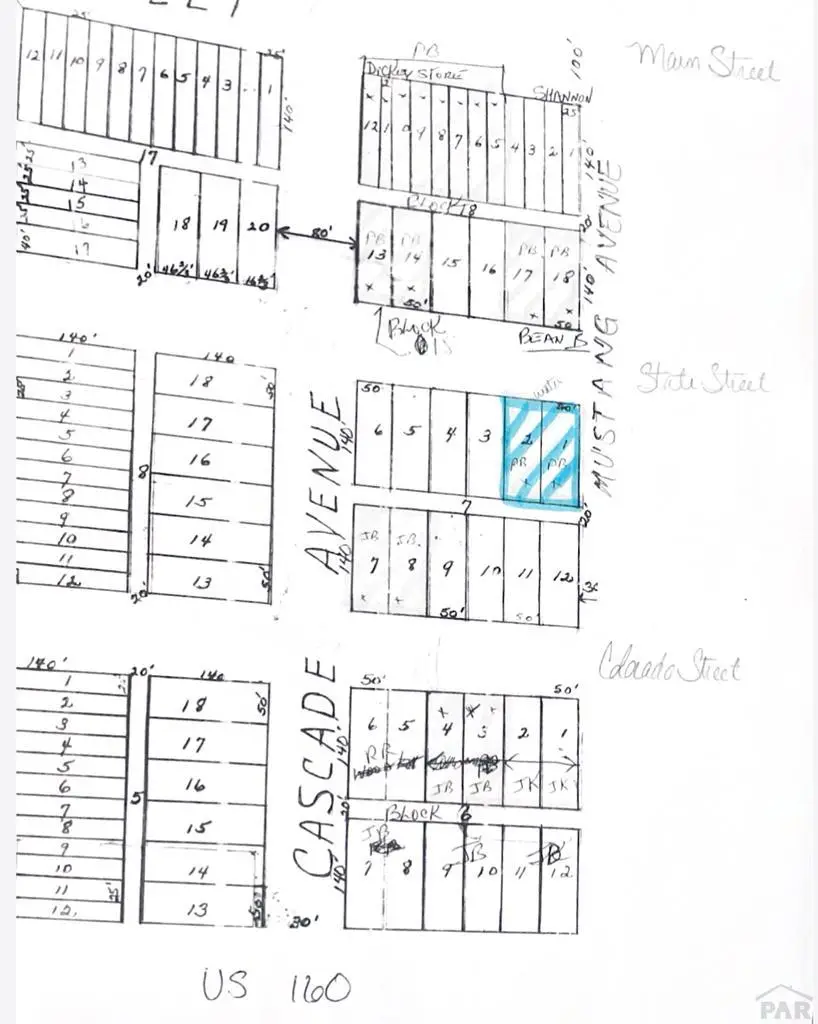 25'
25'
PB
100'
Main Street
DICKEY STORE
SHANNON
12 11 10 9 8 7 6 5 4 3 1
140'
2
25'
12 1 9 8 7 6 5 4 3 2 1
140'
17
25' 13
25' 14
25' 15
25' 16
40' 17
18 19 20
20'
46⅔' 46⅔'
80'
BLOCK 18
20'
PB PB PB PB
13 14 15 16 17 18
140'
50' 50'
BLOCK
18
BEAN B
MUSTANG AVENUE
State Street
140'
1
2
3
4
5
6
7
8
9
10
11
12
8
20'
140
18 50'
17
16
15
14
13 50'
AVENUE
water
50 50'
6 5 4 3 2 1
140'
PB PB
7
20'
JB JB
7 8 9 10 11 12
140'
50' 50'
Colorado Street
140'
1
2
3
4
5
6
7
8
9
10
11
12
25'
20'
5
140
18 50'
17
16
15
14
13 50'
30'
CASCADE
50' 50'
6 5 4 3 2 1
140'
JB JB JK JK
20'
BLOCK 6
JB JB
7 8 9 10 11 12
140'
US 160
PAR